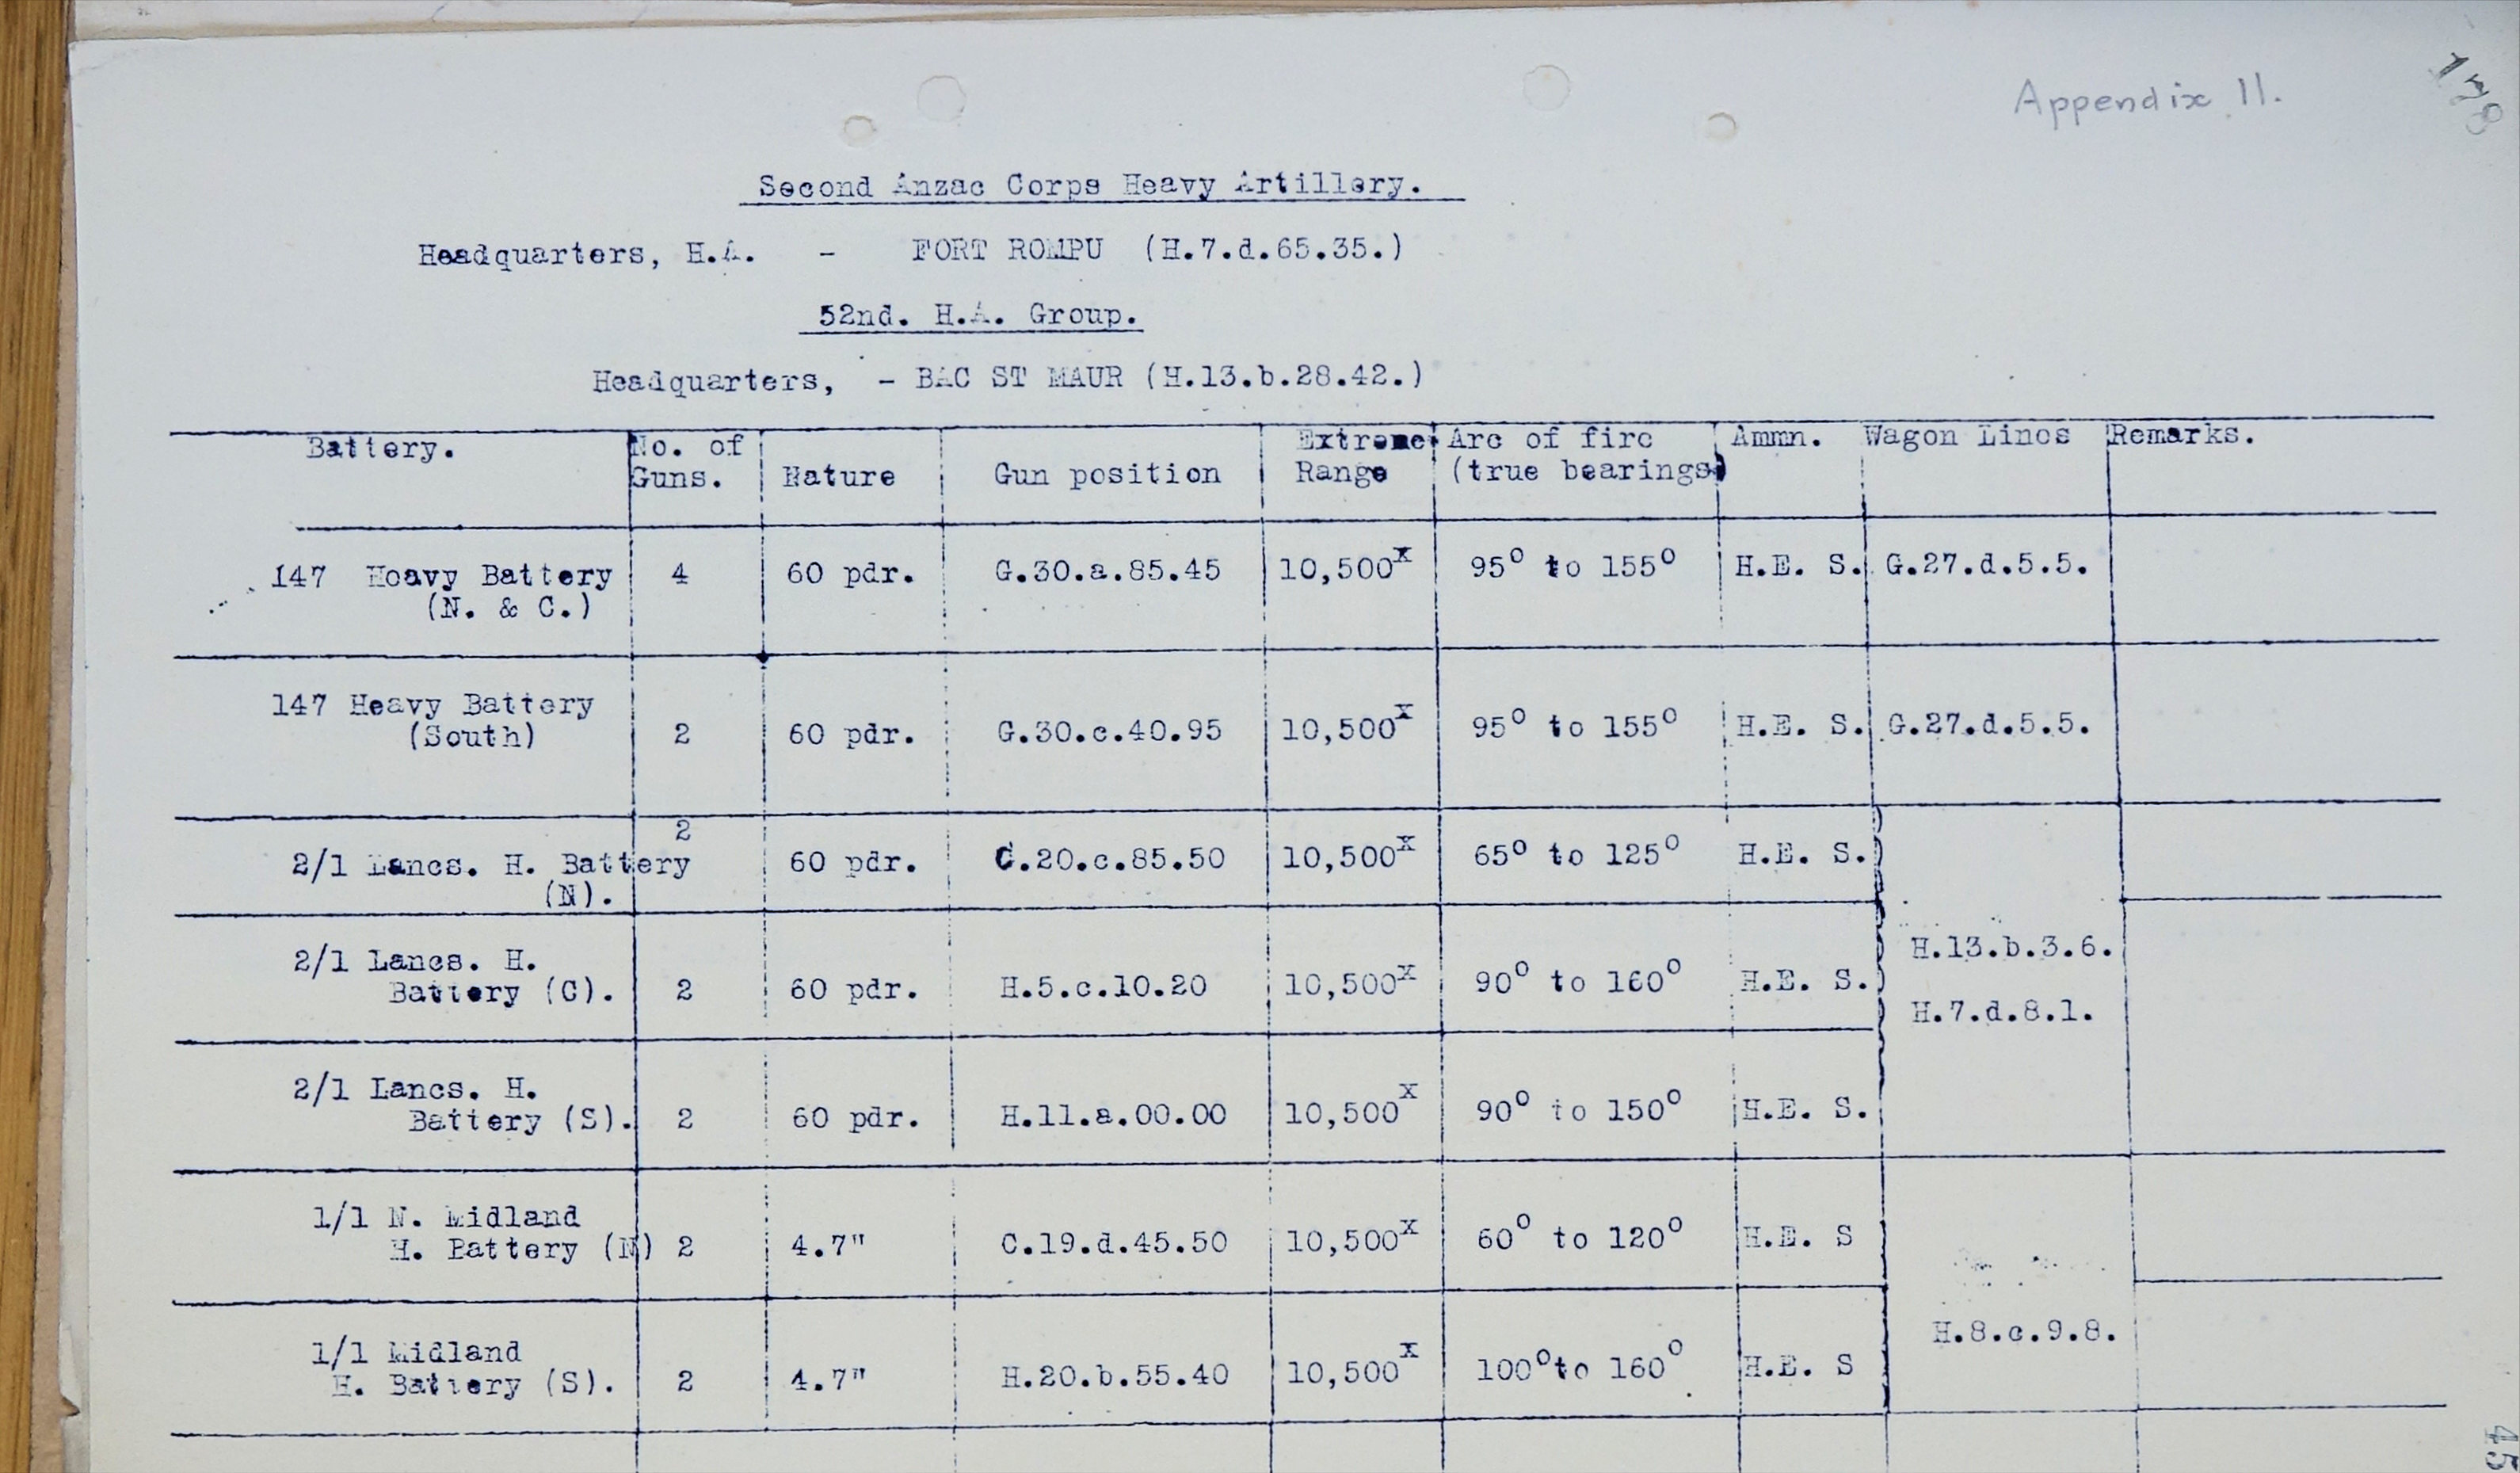 Appendix 11.
178
Second Anzac Corps Heavy Artillery.
Headquarters, H.A. - FORT ROMPU (H.7.d.65.35.)
52nd. H.A. Group.
Headquarters, - BAC ST MAUR (H.13.b.28.42.)
Battery. No. of Guns. Nature Gun position Extreme Range Arc of fire (true bearings) Ammn. Wagon Lines Remarks.
147 Heavy Battery 4 60 pdr. G.30.a.85.45 10,500x 95° to 155° H.E. S. G.27.d.5.5.
(N. & C.)
147 Heavy Battery
(South) 2 60 pdr. G.30.c.40.95 10,500x 95° to 155° H.E. S. G.27.d.5.5.
2
2/1 Lancs. H. Battery 60 pdr. C.20.c.85.50 10,500x 65° to 125° H.E. S.
(N).
2/1 Lancs. H. H.13.b.3.6.
Battery (C). 2 60 pdr. H.5.c.10.20 10,500x 90° to 160° H.E. S.
H.7.d.8.1.
2/1 Lancs. H.
Battery (S). 2 60 pdr. H.11.a.00.00 10,500x 90° to 150° H.E. S.
1/1 N. Midland
H. Battery (N) 2 4.7" C.19.d.45.50 10,500x 60° to 120° H.E. S
1/1 Midland H.8.c.9.8.
H. Battery (S). 2 4.7" H.20.b.55.40 10,500x 100° to 160° H.E. S
45